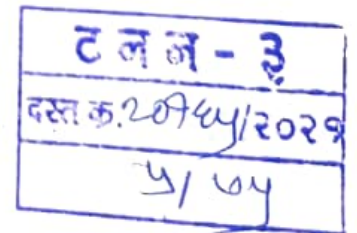 ट न न - ३
दस्त क्र.२०१६५/२०२१
५/७५